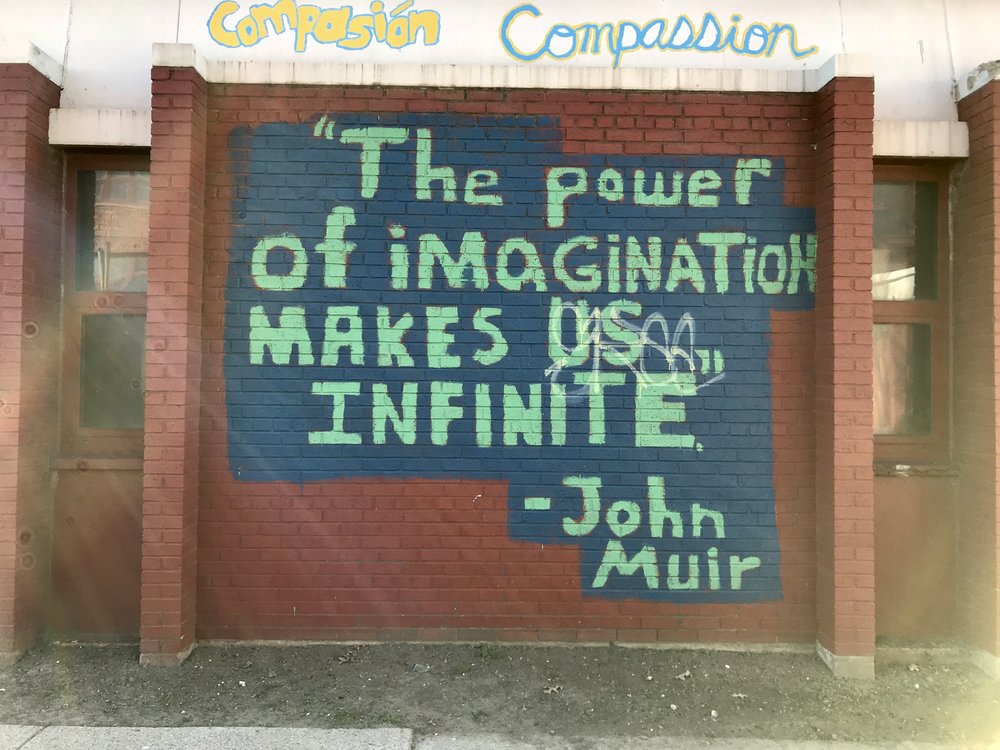 Compasión Compassion
"The power
of iMaGiNATiON
MAKES US
INFINITE."
-John
Muir